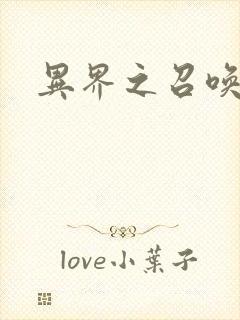 異界之召喚
love小葉子